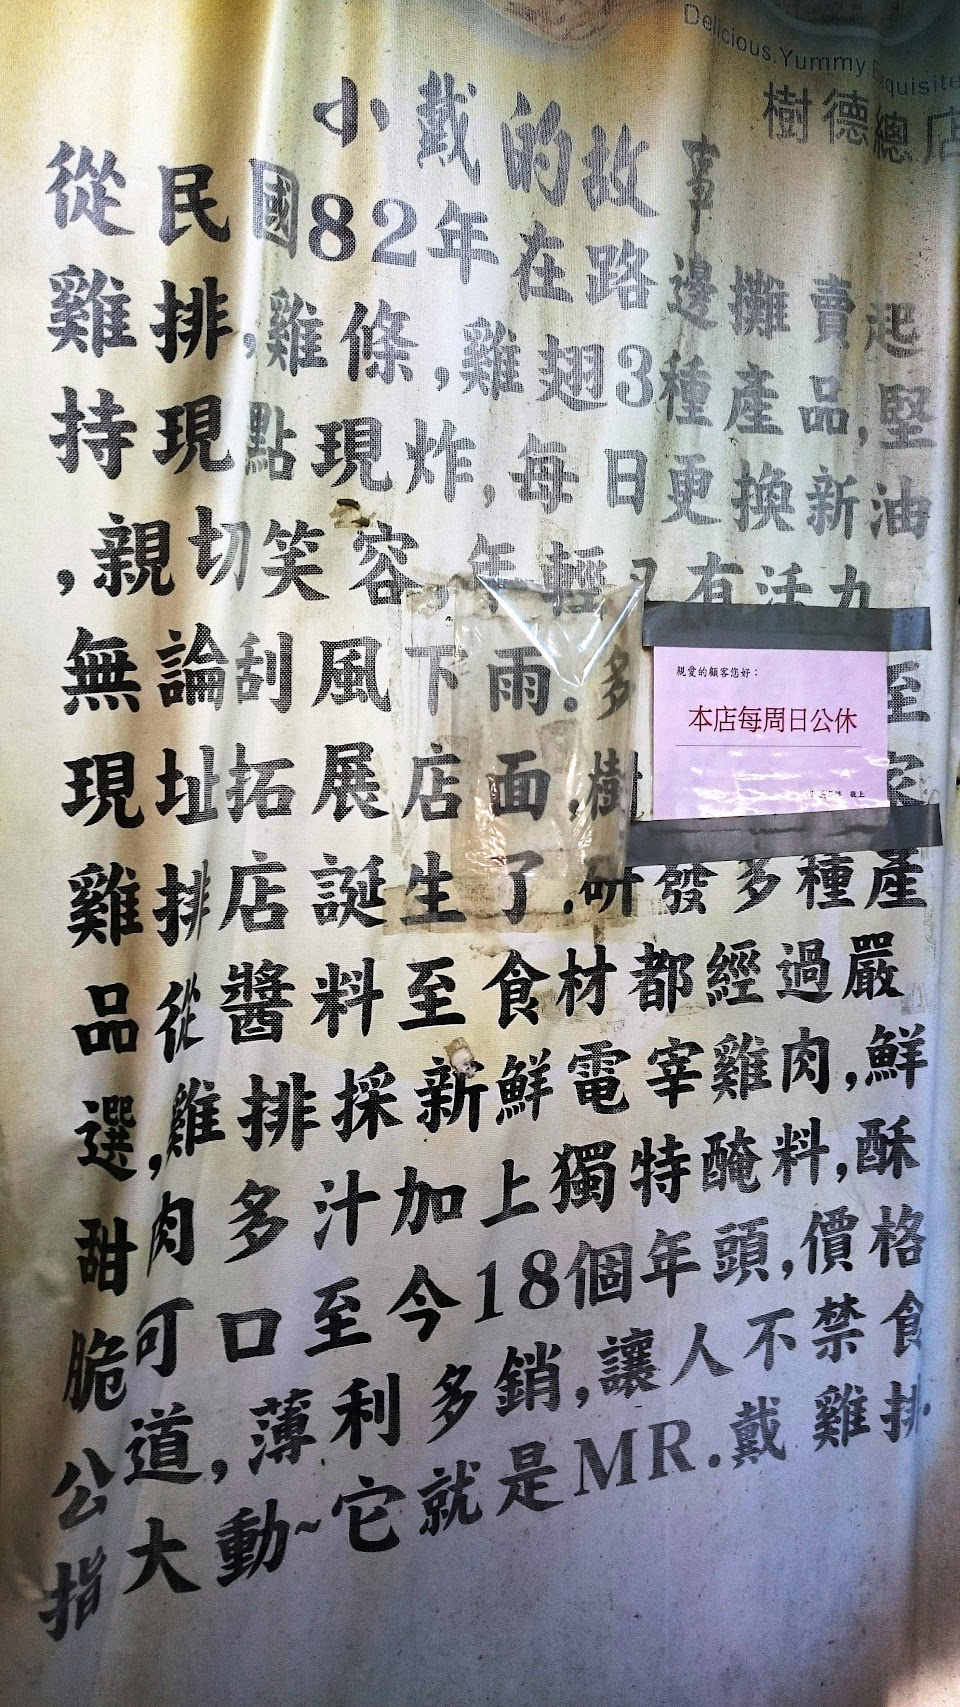 Delicious.Yummy.Exquisite
樹德總店
小戴的故事
從民國82年在路邊攤賣起
雞排,雞條,雞翅3種產品,堅
持現點現炸,每日更換新油
,親切笑容,年輕又有活力
無論刮風下雨.多
至
現址拓展店面.樹
家
親愛的顧客您好：
本店每周日公休
敬上
雞排店誕生了.研發多種產
品從醬料至食材都經過嚴
選,雞排採新鮮電宰雞肉,鮮
甜肉多汁加上獨特醃料,酥
脆可口至今18個年頭,價格
公道,薄利多銷,讓人不禁食
指大動~它就是MR.戴雞排